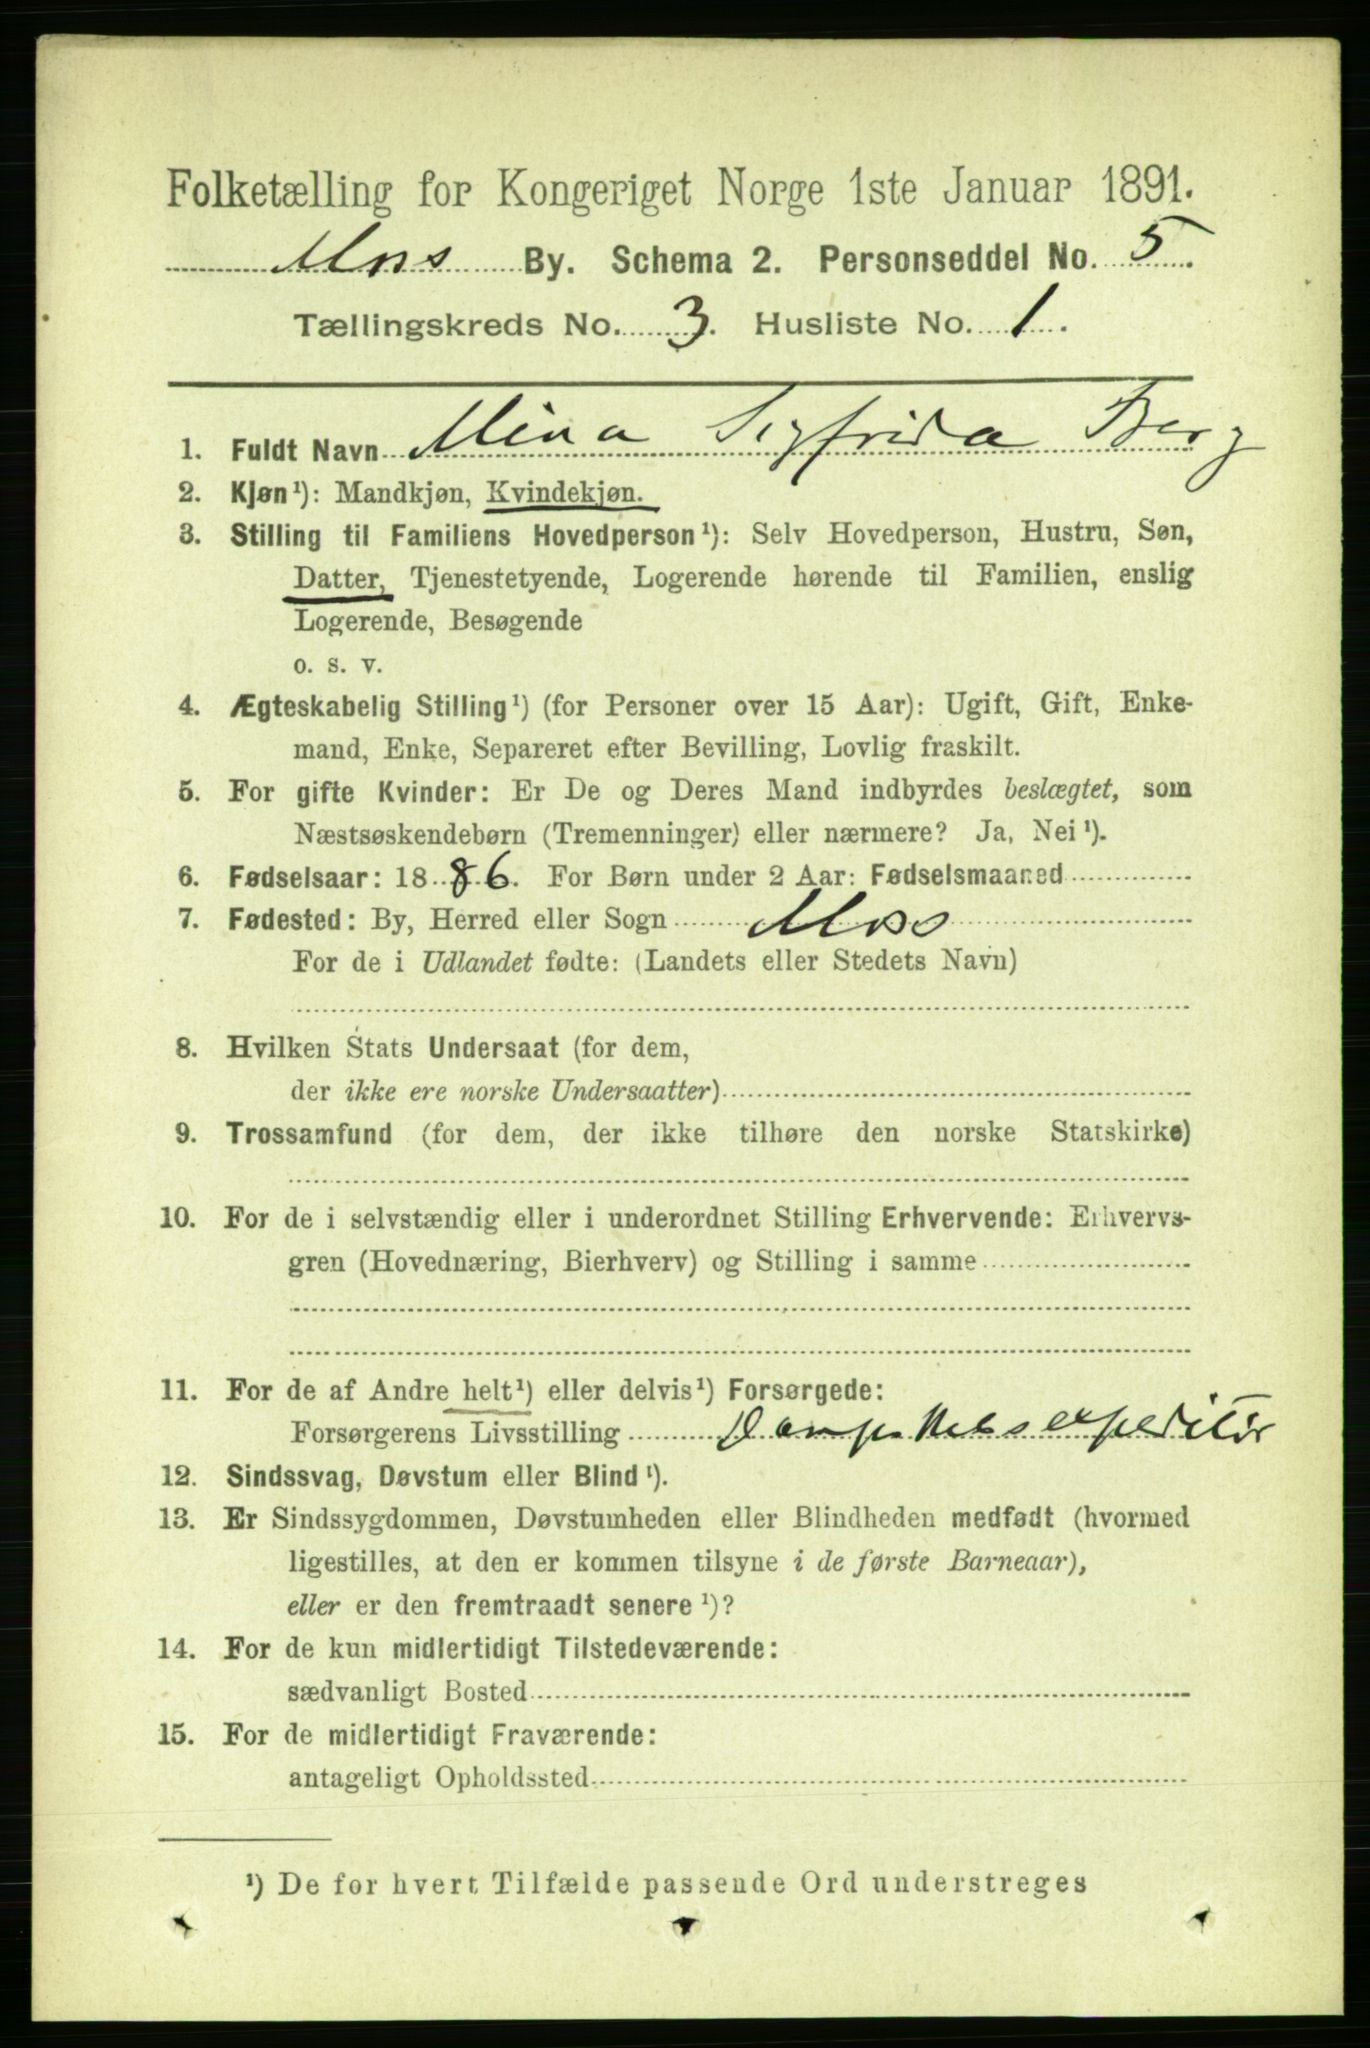 Folketælling for Kongeriget Norge 1ste Januar 1891.
Moss By. Schema 2. Personseddel No. 5.
Tællingskreds No. 3. Husliste No. 1.
1. Fuldt Navn Mina Sigfrida Berg
2. Kjøn¹): Mandkjøn, Kvindekjøn.
3. Stilling til Familiens Hovedperson¹): Selv Hovedperson, Hustru, Søn,
Datter, Tjenestetyende, Logerende hørende til Familien, enslig
Logerende, Besøgende
o. s. v.
4. Ægteskabelig Stilling¹) (for Personer over 15 Aar): Ugift, Gift, Enke-
mand, Enke, Separeret efter Bevilling, Lovlig fraskilt.
5. For gifte Kvinder: Er De og Deres Mand indbyrdes beslægtet, som
Næstsøskendebørn (Tremenninger) eller nærmere? Ja, Nei¹).
6. Fødselsaar: 1886. For Børn under 2 Aar: Fødselsmaaned
7. Fødested: By, Herred eller Sogn Moss
For de i Udlandet fødte: (Landets eller Stedets Navn)
8. Hvilken Stats Undersaat (for dem,
der ikke ere norske Undersaatter)
9. Trossamfund (for dem, der ikke tilhøre den norske Statskirke)
10. For de i selvstændig eller i underordnet Stilling Erhvervende: Erhvervs-
gren (Hovednæring, Bierhverv) og Stilling i samme
11. For de af Andre helt¹) eller delvis¹) Forsørgede:
Forsørgerens Livsstilling Dampskibsexpeditør
12. Sindssvag, Døvstum eller Blind¹).
13. Er Sindssygdommen, Døvstumheden eller Blindheden medfødt (hvormed
ligestilles, at den er kommen tilsyne i de første Barneaar),
eller er den fremtraadt senere¹)?
14. For de kun midlertidigt Tilstedeværende:
sædvanligt Bosted
15. For de midlertidigt Fraværende:
antageligt Opholdssted
¹) De for hvert Tilfælde passende Ord understreges